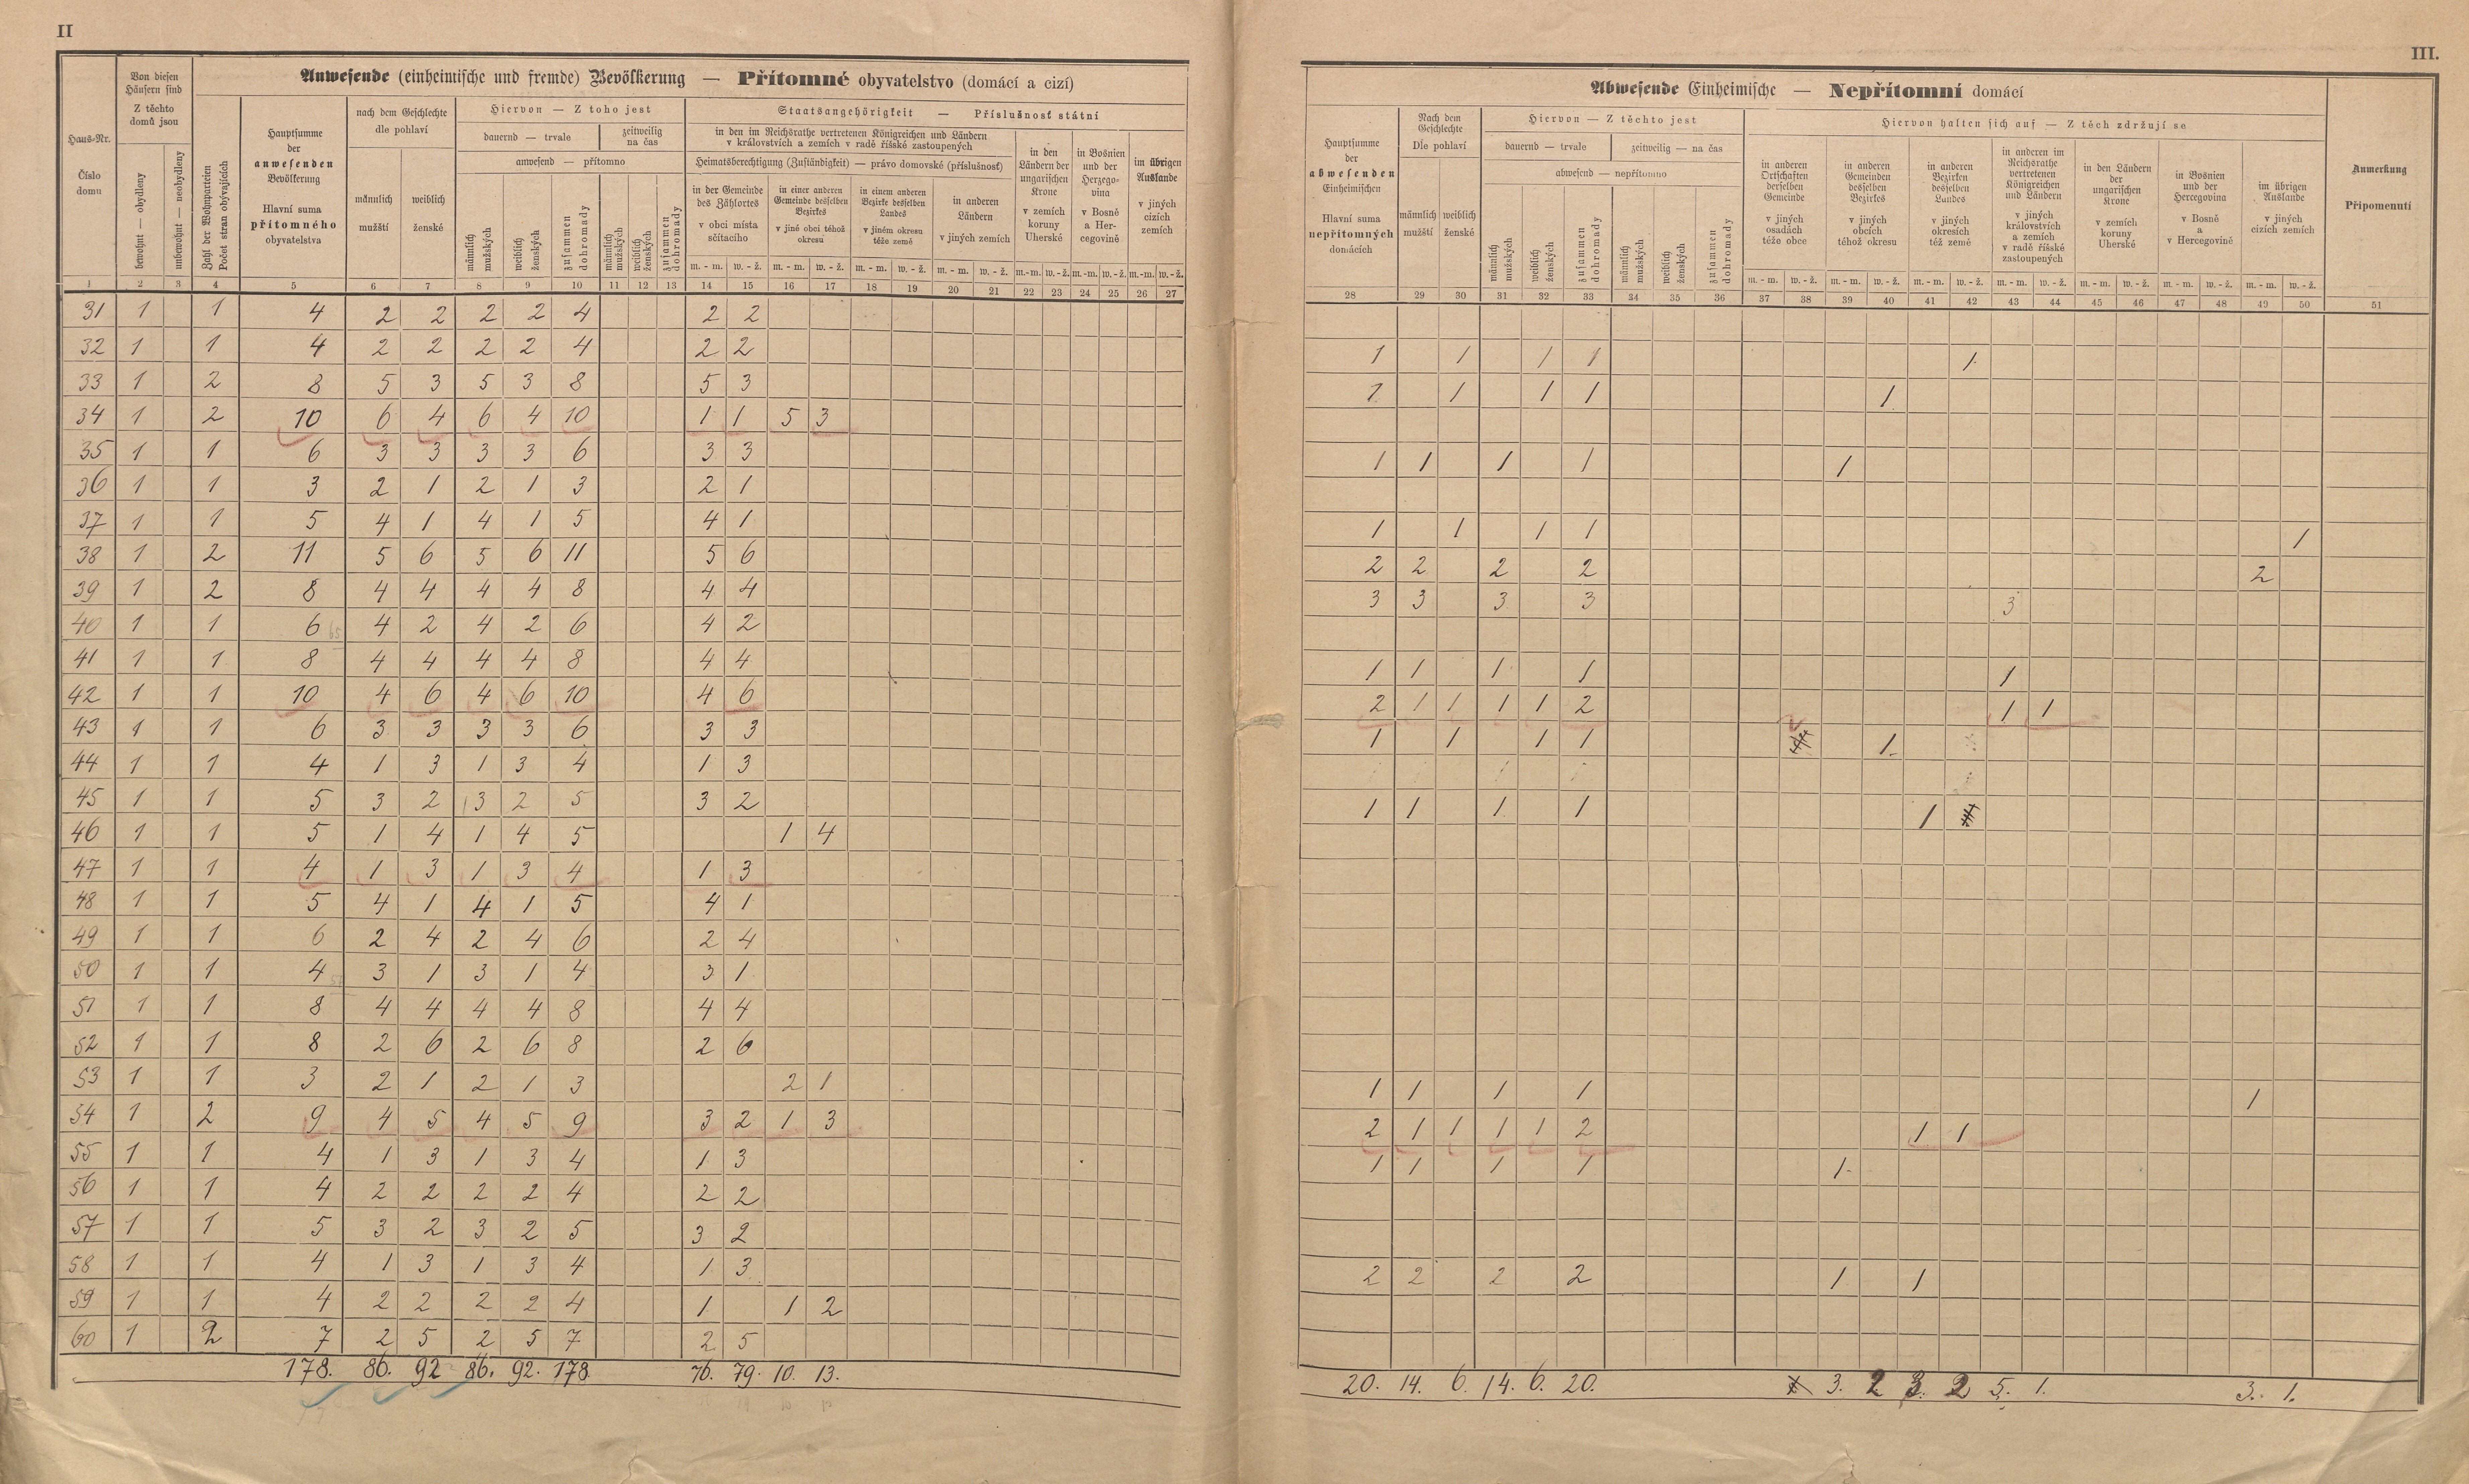 II
Anwesende (einheimische und fremde) Bevölkerung — Přítomné obyvatelstvo (domácí a cizí)
Haus-Nr. Číslo domu
Von diesen Häusern sind Z těchto domů jsou
bewohnt — obydleny
unbewohnt — neobydleny
Zahl der Wohnparteien Počet stran obývajících
Hauptsumme der anwesenden Bevölkerung Hlavní suma přítomného obyvatelstva
nach dem Geschlechte dle pohlaví
männlich mužští
weiblich ženské
Hiervon — Z toho jest
dauernd — trvale
zeitweilig na čas
anwesend — přítomno
männlich mužských
weiblich ženských
zusammen dohromady
männlich mužských
weiblich ženských
zusammen dohromady
Staatsangehörigkeit — Příslušnost státní
in den im Reichsrathe vertretenen Königreichen und Ländern
v královstvích a zemích v radě říšské zastoupených
Heimatsberechtigung (Zuständigkeit) — právo domovské (příslušnost)
in der Gemeinde des Zählortes v obci místa sčítacího
in einer anderen Gemeinde desselben Bezirkes v jiné obci téhož okresu
in einem anderen Bezirke desselben Landes v jiném okresu téže země
in anderen Ländern v jiných zemích
in den Ländern der ungarischen Krone v zemích koruny Uherské
in Bosnien und der Herzegovina v Bosně a Hercegovině
im übrigen Auslande v jiných cizích zemích
m. - m. w. - ž. m. - m. w. - ž. m. - m. w. - ž. m. - m. w. - ž. m.-m. w.-ž. m.-m. w.-ž. m.-m. w.-ž.
1 2 3 4 5 6 7 8 9 10 11 12 13 14 15 16 17 18 19 20 21 22 23 24 25 26 27
31 1 1 4 2 2 2 2 4 2 2
32 1 1 4 2 2 2 2 4 2 2
33 1 2 8 5 3 5 3 8 5 3
34 1 2 10 6 4 6 4 10 1 1 5 3
35 1 1 6 3 3 3 3 6 3 3
36 1 1 3 2 1 2 1 3 2 1
37 1 1 5 4 1 4 1 5 4 1
38 1 2 11 5 6 5 6 11 5 6
39 1 2 8 4 4 4 4 8 4 4
40 1 1 6 4 2 4 2 6 4 2
41 1 1 8 4 4 4 4 8 4 4
42 1 1 10 4 6 4 6 10 4 6
43 1 1 6 3 3 3 3 6 3 3
44 1 1 4 1 3 1 3 4 1 3
45 1 1 5 3 2 3 2 5 3 2
46 1 1 5 1 4 1 4 5 1 4
47 1 1 4 1 3 1 3 4 1 3
48 1 1 5 4 1 4 1 5 4 1
49 1 1 6 2 4 2 4 6 2 4
50 1 1 4 3 1 3 1 4 3 1
51 1 1 8 4 4 4 4 8 4 4
52 1 1 8 2 6 2 6 8 2 6
53 1 1 3 2 1 2 1 3 2 1
54 1 2 9 4 5 4 5 9 3 2 1 3
55 1 1 4 1 3 1 3 4 1 3
56 1 1 4 2 2 2 2 4 2 2
57 1 1 5 3 2 3 2 5 3 2
58 1 1 4 1 3 1 3 4 1 3
59 1 1 4 2 2 2 2 4 1 1 2
60 1 2 7 2 5 2 5 7 2 5
178. 86. 92 86. 92. 178 76. 79. 10. 13.
III.
Abwesende Einheimische — Nepřítomní domácí
Hauptsumme der abwesenden Einheimischen Hlavní suma nepřítomných domácích
Nach dem Geschlechte Dle pohlaví
männlich mužští
weiblich ženské
Hiervon — Z těchto jest
dauernd — trvale
zeitweilig — na čas
abwesend — nepřítomno
männlich mužských
weiblich ženských
zusammen dohromady
männlich mužských
weiblich ženských
zusammen dohromady
Hiervon halten sich auf — Z těch zdržují se
in anderen Ortschaften derselben Gemeinde v jiných osadách téže obce
in anderen Gemeinden desselben Bezirkes v jiných obcích téhož okresu
in anderen Bezirken desselben Landes v jiných okresích též země
in anderen im Reichsrathe vertretenen Königreichen und Ländern v jiných královstvích a zemích v radě říšské zastoupených
in den Ländern der ungarischen Krone v zemích koruny Uherské
in Bosnien und der Hercegovina v Bosně a v Hercegovině
im übrigen Auslande v jiných cizích zemích
Anmerkung Připomenutí
m. - m. w. - ž. m. - m. w. - ž. m. - m. w. - ž. m. - m. w. - ž. m. - m. w. - ž. m. - m. w. - ž. m. - m. w. - ž.
28 29 30 31 32 33 34 35 36 37 38 39 40 41 42 43 44 45 46 47 48 49 50 51
1 1 1 1 1.
1 1 1 1 1.
1 1 1 1 1
1 1 1 1 1
2 2 2 2 2
3 3 3 3 3
1 1 1 1 1
2 1 1 1 1 2 1 1
1 1 1 1 1.
1 1 1 1 1
1 1 1 1 1
2 1 1 1 1 2 1 1
1 1 1 1 1.
2 2 2 2 1 1
20. 14. 6. 14. 6. 20. 3. 2 3. 2 5. 1. 3. 1.